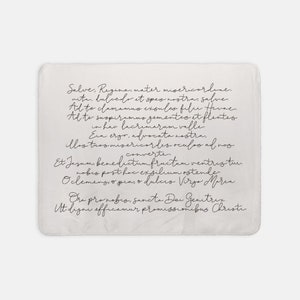 Salve, Regina, mater misericordiae
vita, dulcedo et spes nostra, salve.
Ad te clamamus exsules filii Hevae.
Ad te suspiramus gementes et flentes
in hac lacrimarum valle.
Eia ergo, advocata nostra,
illos tuos misericordes oculos ad nos
converte.
Et Jesum, benedictum fructum ventris tui
nobis post hoc exsilium ostende.
O clemens, o pia, o dulcis Virgo Maria.
Ora pro nobis, sancta Dei Genitrix.
Ut digni efficiamur promissionibus Christi.